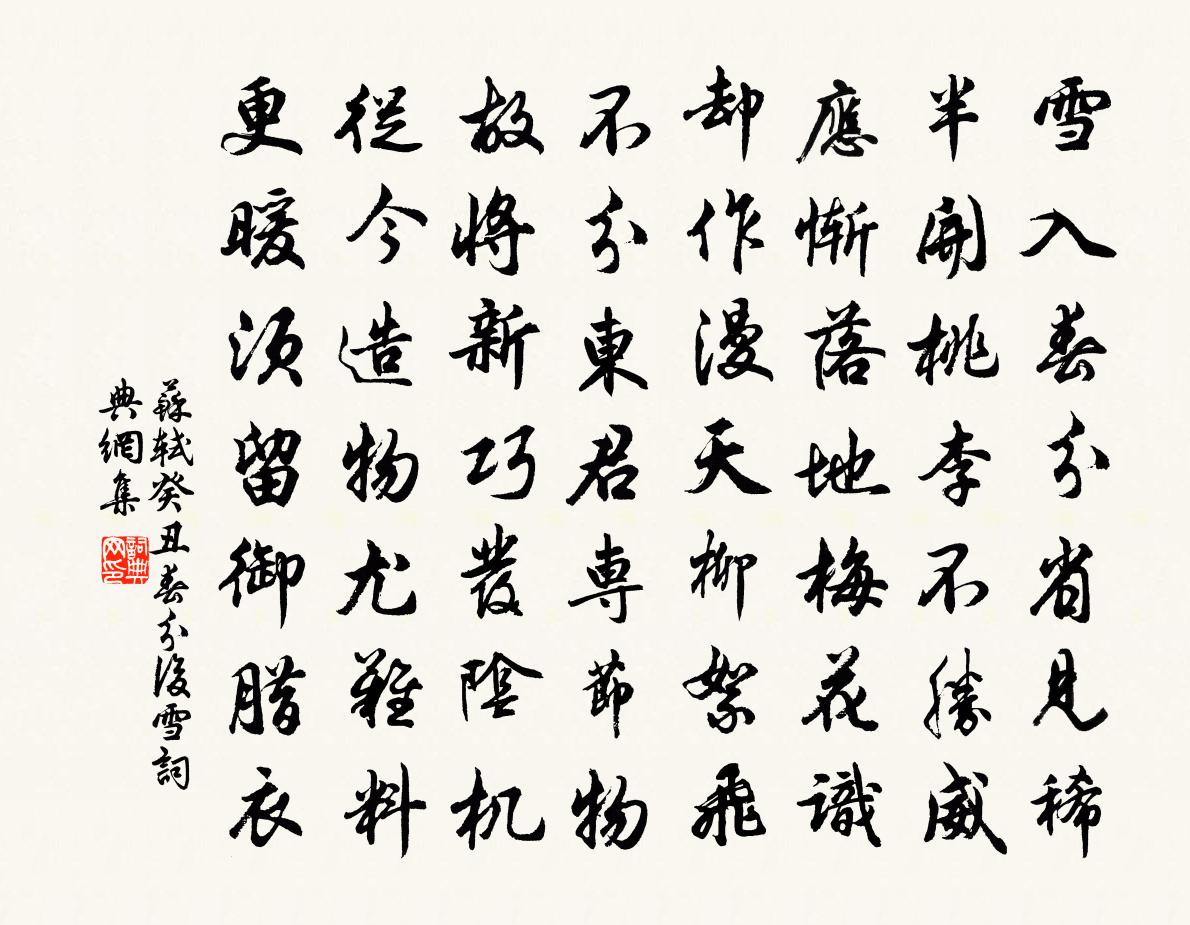 雪入春分省見稀
半開桃李不勝威
應慚落地梅花識
却作漫天柳絮飛
不分東君專節物
故將新巧發陰机
從今造物尤難料
更暖須留御腊衣
蘇軾癸丑春分後雪詞
典網集
詞典
网印